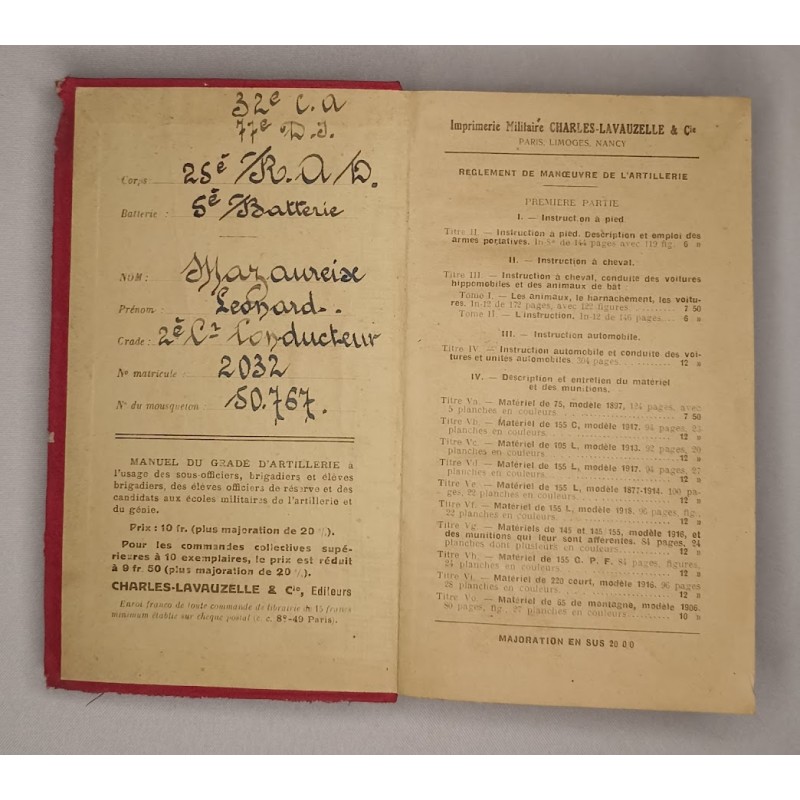 32e C.A
77e D.I.
Corps 25è R.A.D.
Batterie : 5è Batterie
NOM : Mazaureixe
Prénom : Léonard
Grade : 2è Cr Conducteur
No matricule : 2032
No du mousqueton 50.767.
MANUEL DU GRADE D'ARTILLERIE à
l'usage des sous-officiers, brigadiers et élèves
brigadiers, des élèves officiers de réserve et des
candidats aux écoles militaires de l'artillerie et
du génie.
Prix : 10 fr. (plus majoration de 20 %).
Pour les commandes collectives supé-
rieures à 10 exemplaires, le prix est réduit
à 9 fr. 50 (plus majoration de 20 %).
CHARLES-LAVAUZELLE & Cie, Editeurs
Envoi franco de toute commande de librairie de 15 francs
minimum établie sur chèque postal (c. c. 87-49 Paris).
Imprimerie Militaire CHARLES-LAVAUZELLE & Cie
PARIS, LIMOGES, NANCY
REGLEMENT DE MANŒUVRE DE L'ARTILLERIE
PREMIÈRE PARTIE
I. — Instruction à pied.
Titre II. — Instruction à pied. Description et emploi des
armes portatives. In-8° de 144 pages avec 119 fig. 6 »
II. — Instruction à cheval.
Titre III. — Instruction à cheval, conduite des voitures
hippomobiles et des animaux de bât :
Tome I. — Les animaux, le harnachement, les voitu-
res. In-12 de 172 pages, avec 122 figures. 7 50
Tome II. — L'instruction. In-12 de 146 pages... 6 »
III. — Instruction automobile.
Titre IV. — Instruction automobile et conduite des voi-
tures et unités automobiles. 204 pages... 12 »
IV. — Description et entretien du matériel
et des munitions.
Titre Va. — Matériel de 75, modèle 1897, 124 pages, avec
5 planches en couleurs 7 50
Titre Vb. — Matériel de 155 C, modèle 1917. 94 pages, 23
planches en couleurs 12 »
Titre Vc. — Matériel de 105 L, modèle 1913. 92 pages, 20
planches en couleurs. 12 »
Titre Vd. — Matériel de 155 L, modèle 1917. 94 pages, 27
planches en couleurs 12 »
Titre Ve. — Matériel de 155 L, modèle 1877-1914. 100 pa-
ges, 22 planches en couleurs. 12 »
Titre Vf. — Matériel de 155 L, modèle 1918. 96 pages, fig.
22 planches en couleurs. 12 »
Titre Vg. — Matériels de 145 et 145/155, modèle 1916, et
des munitions qui leur sont afférentes. 84 pages, 24
planches dont plusieurs en couleurs. 12 »
Titre Vh. — Matériel de 155 C. P. F. 84 pages, figures,
24 planches en couleurs. 12 »
Titre Vi. — Matériel de 220 court, modèle 1916. 96 pages
28 planches en couleurs. 12 »
Titre Vo. — Matériel de 65 de montagne, modèle 1906.
80 pages, fig., 27 planches en couleurs. 10 »
MAJORATION EN SUS 20 0 0